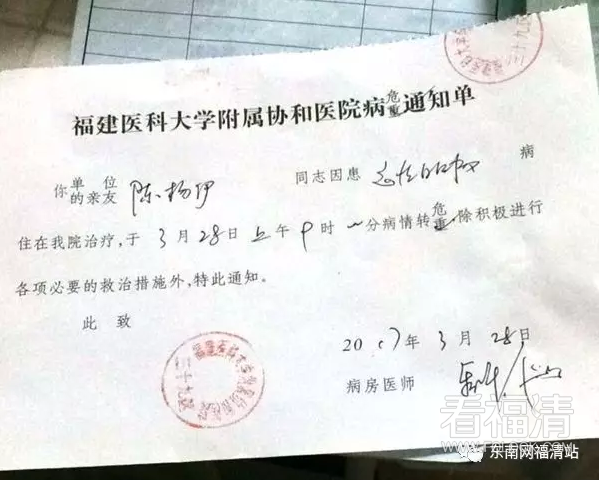 福建医科大学附属协和医院病危重通知单
你单位的亲友 陈杨伊 同志因患 急性白血病 病
住在我院治疗,于 3月28日上午9时 分病情转危重除积极进行
各项必要的救治措施外,特此通知。
此 致
2017年3月28日
病房医师
看福清
东南网福清站